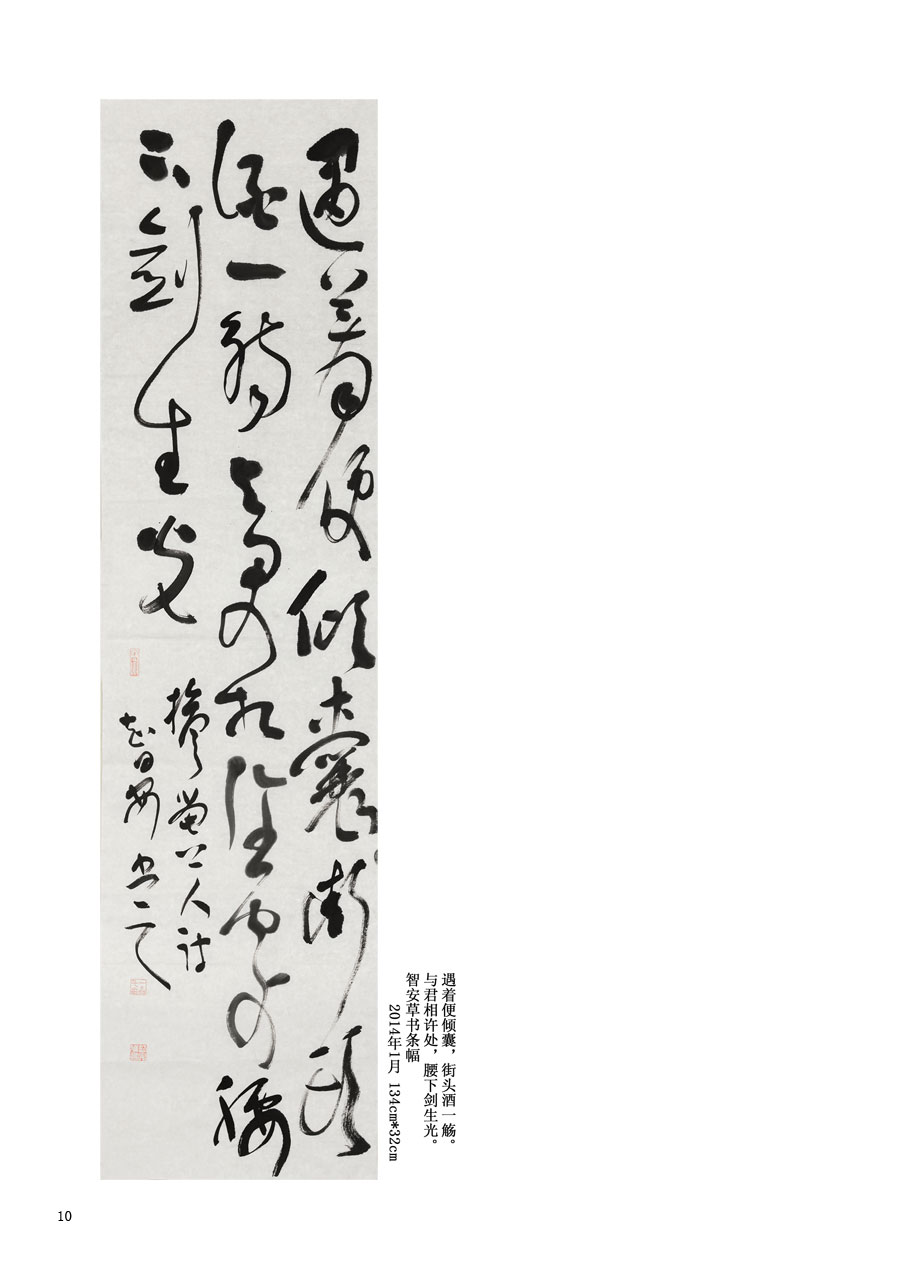 遇着便傾囊街頭
酒一觴 相 腰
下劍生光
擔當上人詩
智安書
遇着便倾囊，街头酒一觞。
与君相许处，腰下剑生光。
智安草书条幅
2014年1月 134cm*32cm
10